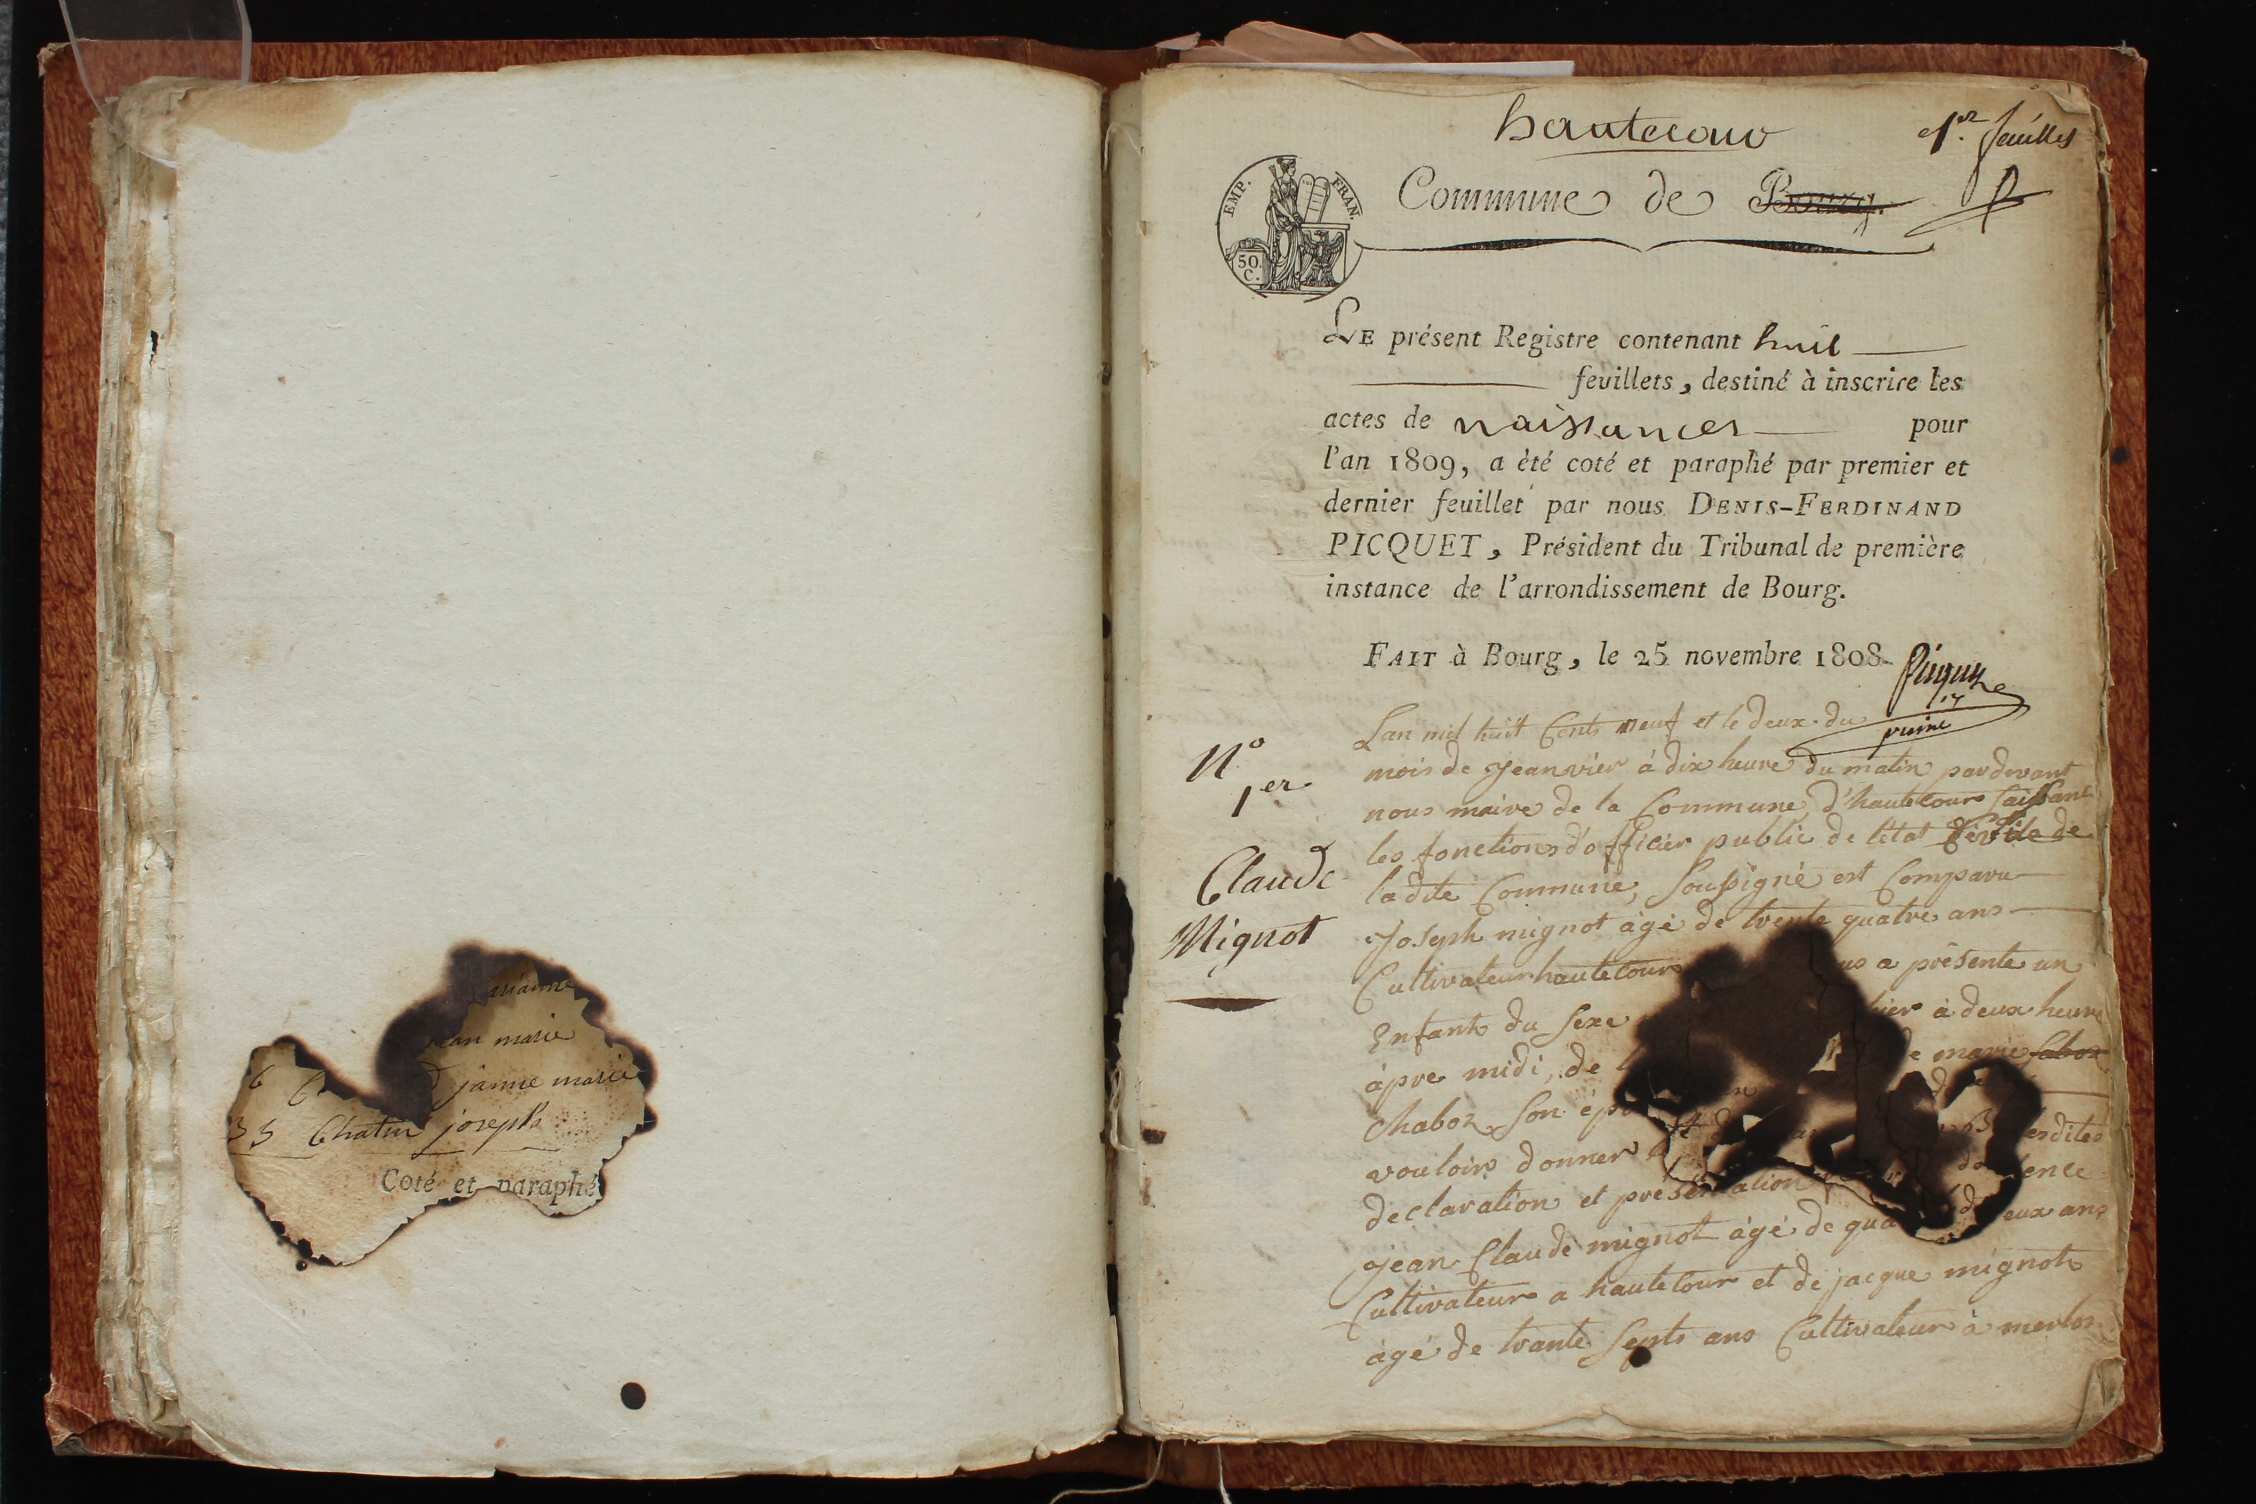 marie
janne marie
33 Chatin joseph
Coté et paraphé
hautecour
1er feuillet
EMP. FRAN.
50 C.
Commune de Bourg.
LE présent Registre contenant huit
feuillets, destiné à inscrire les
actes de naissances pour
l'an 1809, a été coté et paraphé par premier et
dernier feuillet par nous DENIS-FERDINAND
PICQUET, Président du Tribunal de première
instance de l'arrondissement de Bourg.
FAIT à Bourg, le 25 novembre 1808
Picquet
N° 1er
Claude
Mignot
Lan mil huit Cents neuf et le deux du
mois de jeanvier à dix heure du matin pardevant
nous maire de la Commune d'hautecour faissant
les fonctions d'officier public de l'état de
ladite Commune, Soussigné est Comparu
Joseph mignot âgé de trente quatre ans
Cultivateur hautecour a présente un
Enfant du Sexe hier à deux heure
àpre midi, de marie
Chabot Son
vouloir donner
declaration et présentation
jean Claude mignot âgé de ans
Cultivateur a hautecour et de jacque mignot
âgé de trante Septs ans Cultivateur à